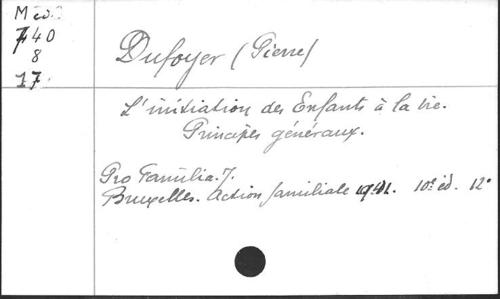 Méd.
740
8
17
Dufoyer (Pierre)
L'initiation des Enfants à la vie.
Principes généraux.
Pro Familia. 7.
Bruxelles. Action familiale 1941. 10e éd. 12°